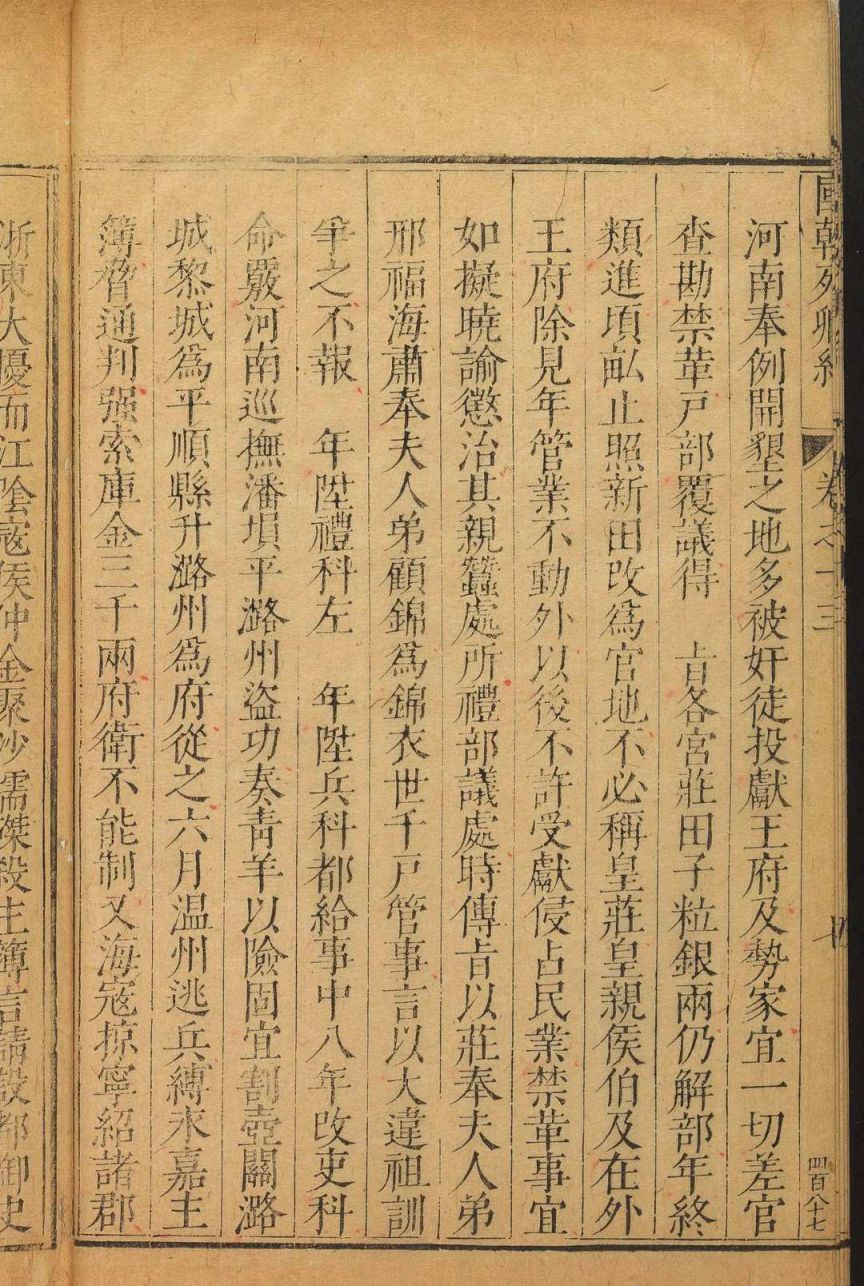 國朝列卿紀 卷之十三 四百八十七
河南奉例開墾之地多被奸徒投獻王府及勢家宜一切差官
查勘禁革戸部覆議得 㫖各宮莊田子粒銀兩仍解部年終
類進頃畝止照新田改爲官地不必稱皇莊皇親侯伯及在外
王府除見年管業不動外以後不許受獻侵占民業禁革事宜
如擬曉諭懲治其親蠶處所禮部議處時傳㫖以莊奉夫人弟
邢福海肅奉夫人弟顧錦爲錦衣世千戸管事言以大違祖訓
爭之不報 年陞禮科左 年陞兵科都給事中八年改吏科
命覈河南巡撫潘塤平潞州盜功奏青羊以險固宜割壺關潞
城黎城爲平順縣升潞州爲府從之六月温州逃兵縛永嘉主
簿脅通判强索庫金三千兩府衛不能制又海寇掠寧紹諸郡
浙東大擾而江陰寇侯仲金聚沙濡桀殺主簿言請設都御史